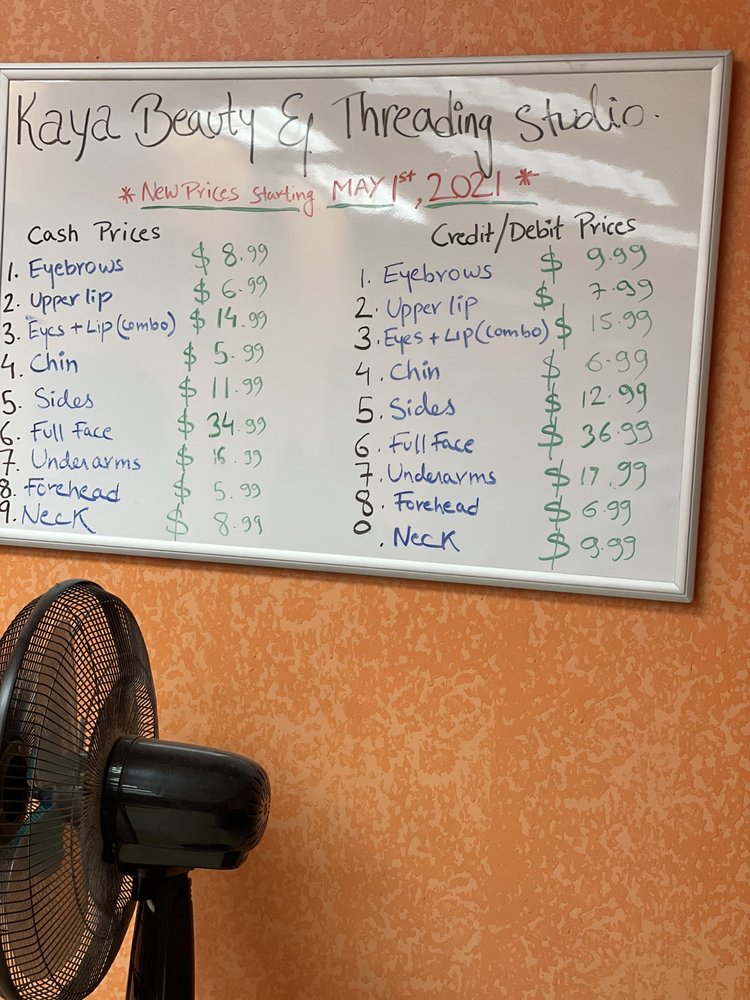 Kaya Beauty & Threading Studio.
* New Prices Starting MAY 1st, 2021 *
Cash Prices
1. Eyebrows $ 8.99
2. Upper lip $ 6.99
3. Eyes + Lip (Combo) $ 14.99
4. Chin $ 5.99
5. Sides $ 11.99
6. Full Face $ 34.99
7. Underarms $ 16.99
8. Forehead $ 5.99
9. Neck $ 8.99
Credit/Debit Prices
1. Eyebrows $ 9.99
2. Upper lip $ 7.99
3. Eyes + Lip (Combo) $ 15.99
4. Chin $ 6.99
5. Sides $ 12.99
6. Full Face $ 36.99
7. Underarms $ 17.99
8. Forehead $ 6.99
0. Neck $ 9.99